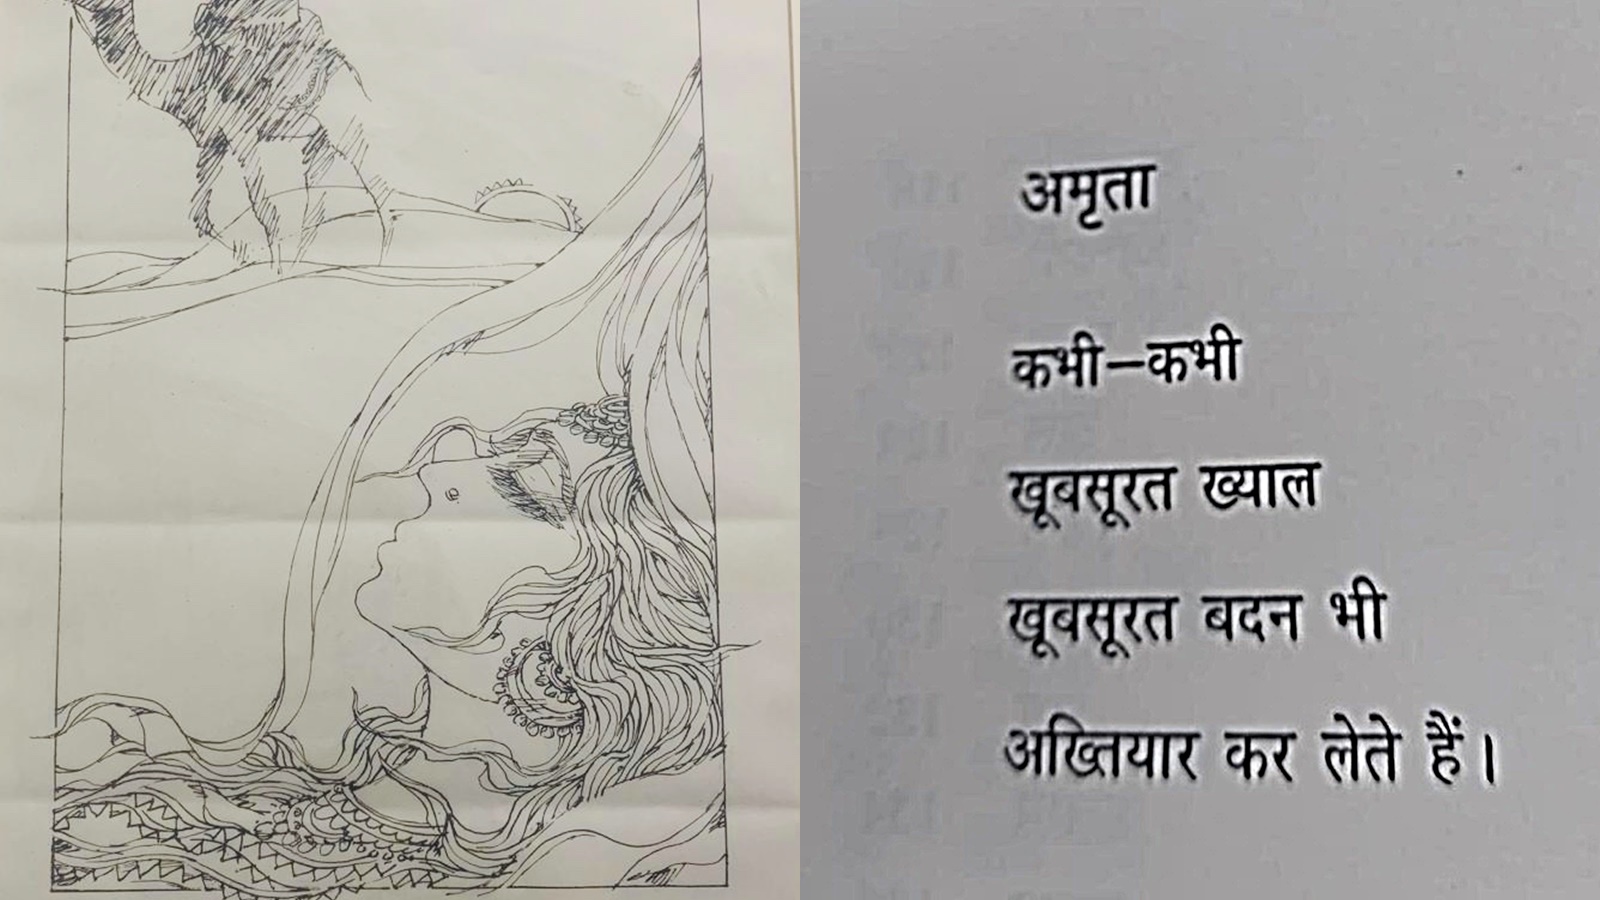 अमृता
कभी–कभी
खूबसूरत ख्याल
खूबसूरत बदन भी
अख्तियार कर लेते हैं।